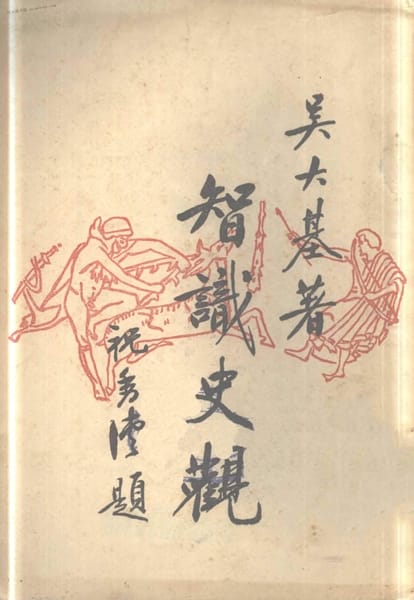 吳大基著
智識史觀
祝秀俠題